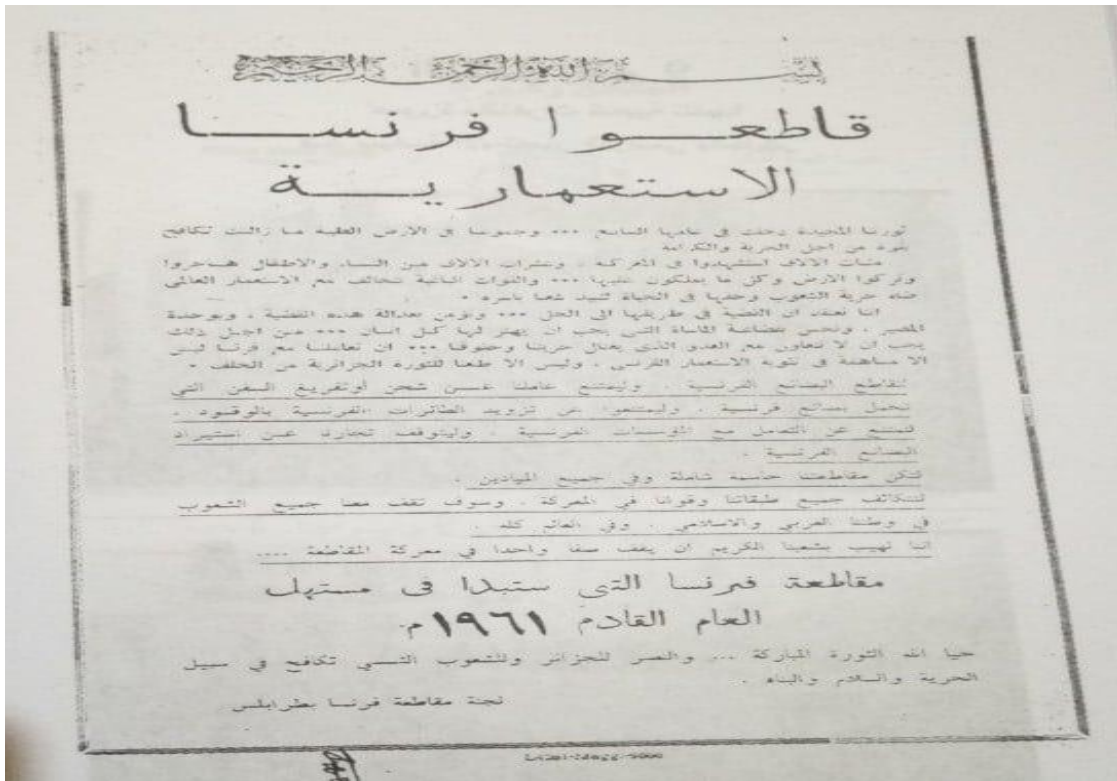 بسم الله الرحمن الرحيم
قاطعوا فرنسا
الاستعمارية
ثورتنا المجيدة دخلت في عامها السابع ... وجموعنا في الارض الطيبة ما زالت تكافح
بقوة من اجل الحرية والكرامة
مئات الآلاف استشهدوا في المعركة . وعشرات الآلاف من النساء والاطفال هاجروا
وتركوا الارض وكل ما يملكون عليها ... والقوات الباغية تتحالف مع الاستعمار العالمي
ضد حرية الشعوب وحقها في الحياة لتبيد شعبا باسره .
اننا نعتقد ان القضية في طريقها الى الحل ... ونؤمن بعدالة هذه القضية . وبوحدة
المصير . ونحس بفضاعة المأساة التي يجب ان يهتز لها كل انسان ... من اجل ذلك
يجب ان لا نتعاون مع العدو الذي يغتال حريتنا وحقوقنا ... ان تعاملنا مع فرنسا ليس
الا مساهمة في تقوية الاستعمار الفرنسي . وليس الا طعنا للثورة الجزائرية من الخلف .
لنقاطع البضائع الفرنسية . وليمتنع عمالنا عن شحن أو تفريغ السفن التي
تحمل بضائع فرنسية . وليمتنعوا عن تزويد الطائرات الفرنسية بالوقود .
لنمتنع عن التعامل مع المؤسسات الفرنسية . وليتوقف تجارنا عن استيراد
البضائع الفرنسية .
لتكن مقاطعتنا حاسمة شاملة وفي جميع الميادين .
لتتكاتف جميع طبقاتنا وقوانا في المعركة . وسوف تقف معنا جميع الشعوب
في وطننا العربي والاسلامي . وفي العالم كله .
اننا نهيب بشعبنا الكريم ان يقف صفا واحدا في معركة المقاطعة ....
مقاطعة فرنسا التي ستبدا في مستهل
العام القادم ١٩٦١ م.
حيا الله الثورة المباركة ... والنصر للجزائر وللشعوب التي تكافح في سبيل
الحرية والسلام والبناء .
لجنة مقاطعة فرنسا بطرابلس